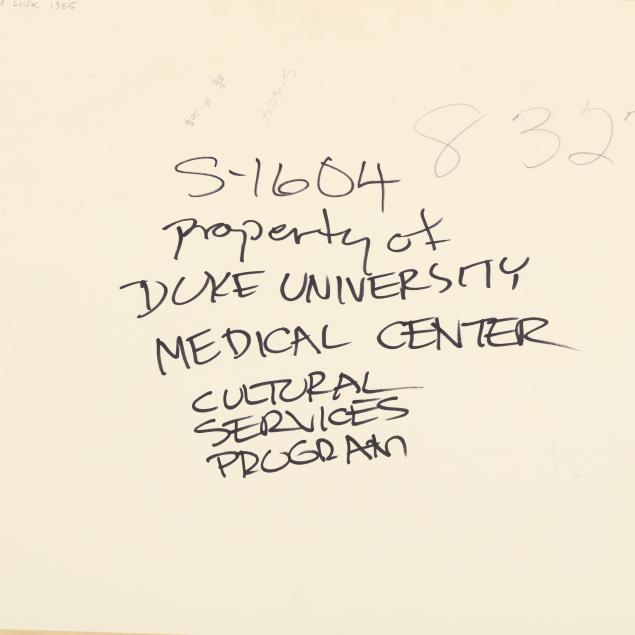 LINK 1985
S-1604
832
S-1604
property of
DUKE UNIVERSITY
MEDICAL CENTER
CULTURAL
SERVICES
PROGRAM